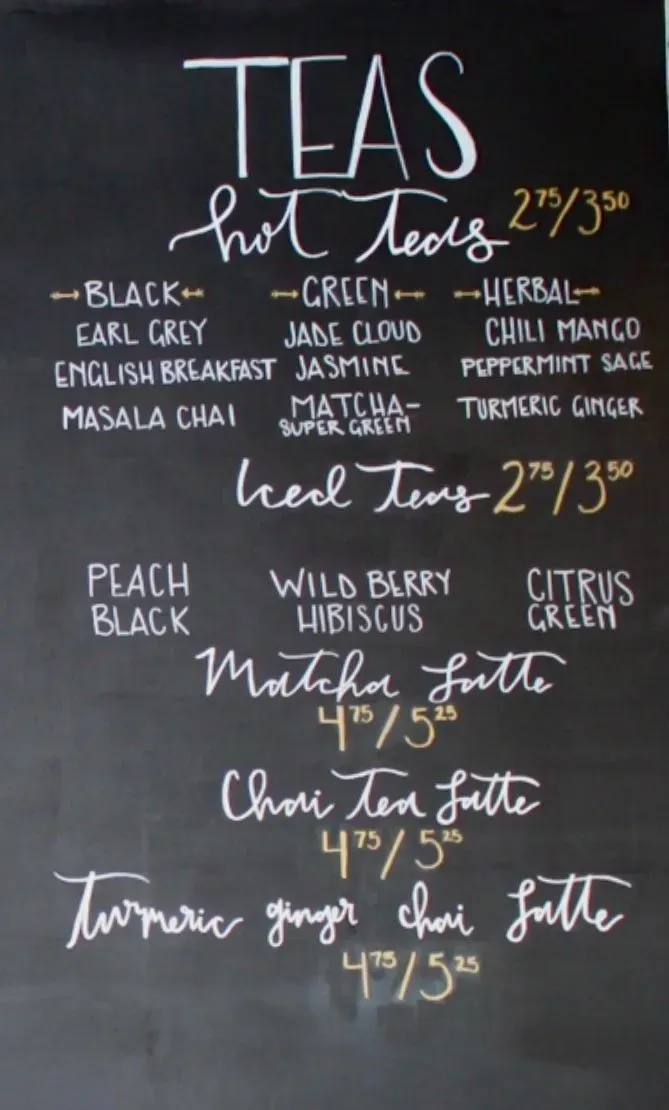 TEAS
hot teas 2 75/3 50
BLACK GREEN HERBAL
EARL GREY JADE CLOUD CHILI MANGO
ENGLISH BREAKFAST JASMINE PEPPERMINT SAGE
MASALA CHAI MATCHA- TURMERIC GINGER
SUPER GREEN
Iced Teas 2 75/3 50
PEACH WILD BERRY CITRUS
BLACK HIBISCUS GREEN
Matcha Latte
4 75/5 25
Chai Tea Latte
4 75/5 25
Turmeric ginger chai Latte
4 75/5 25